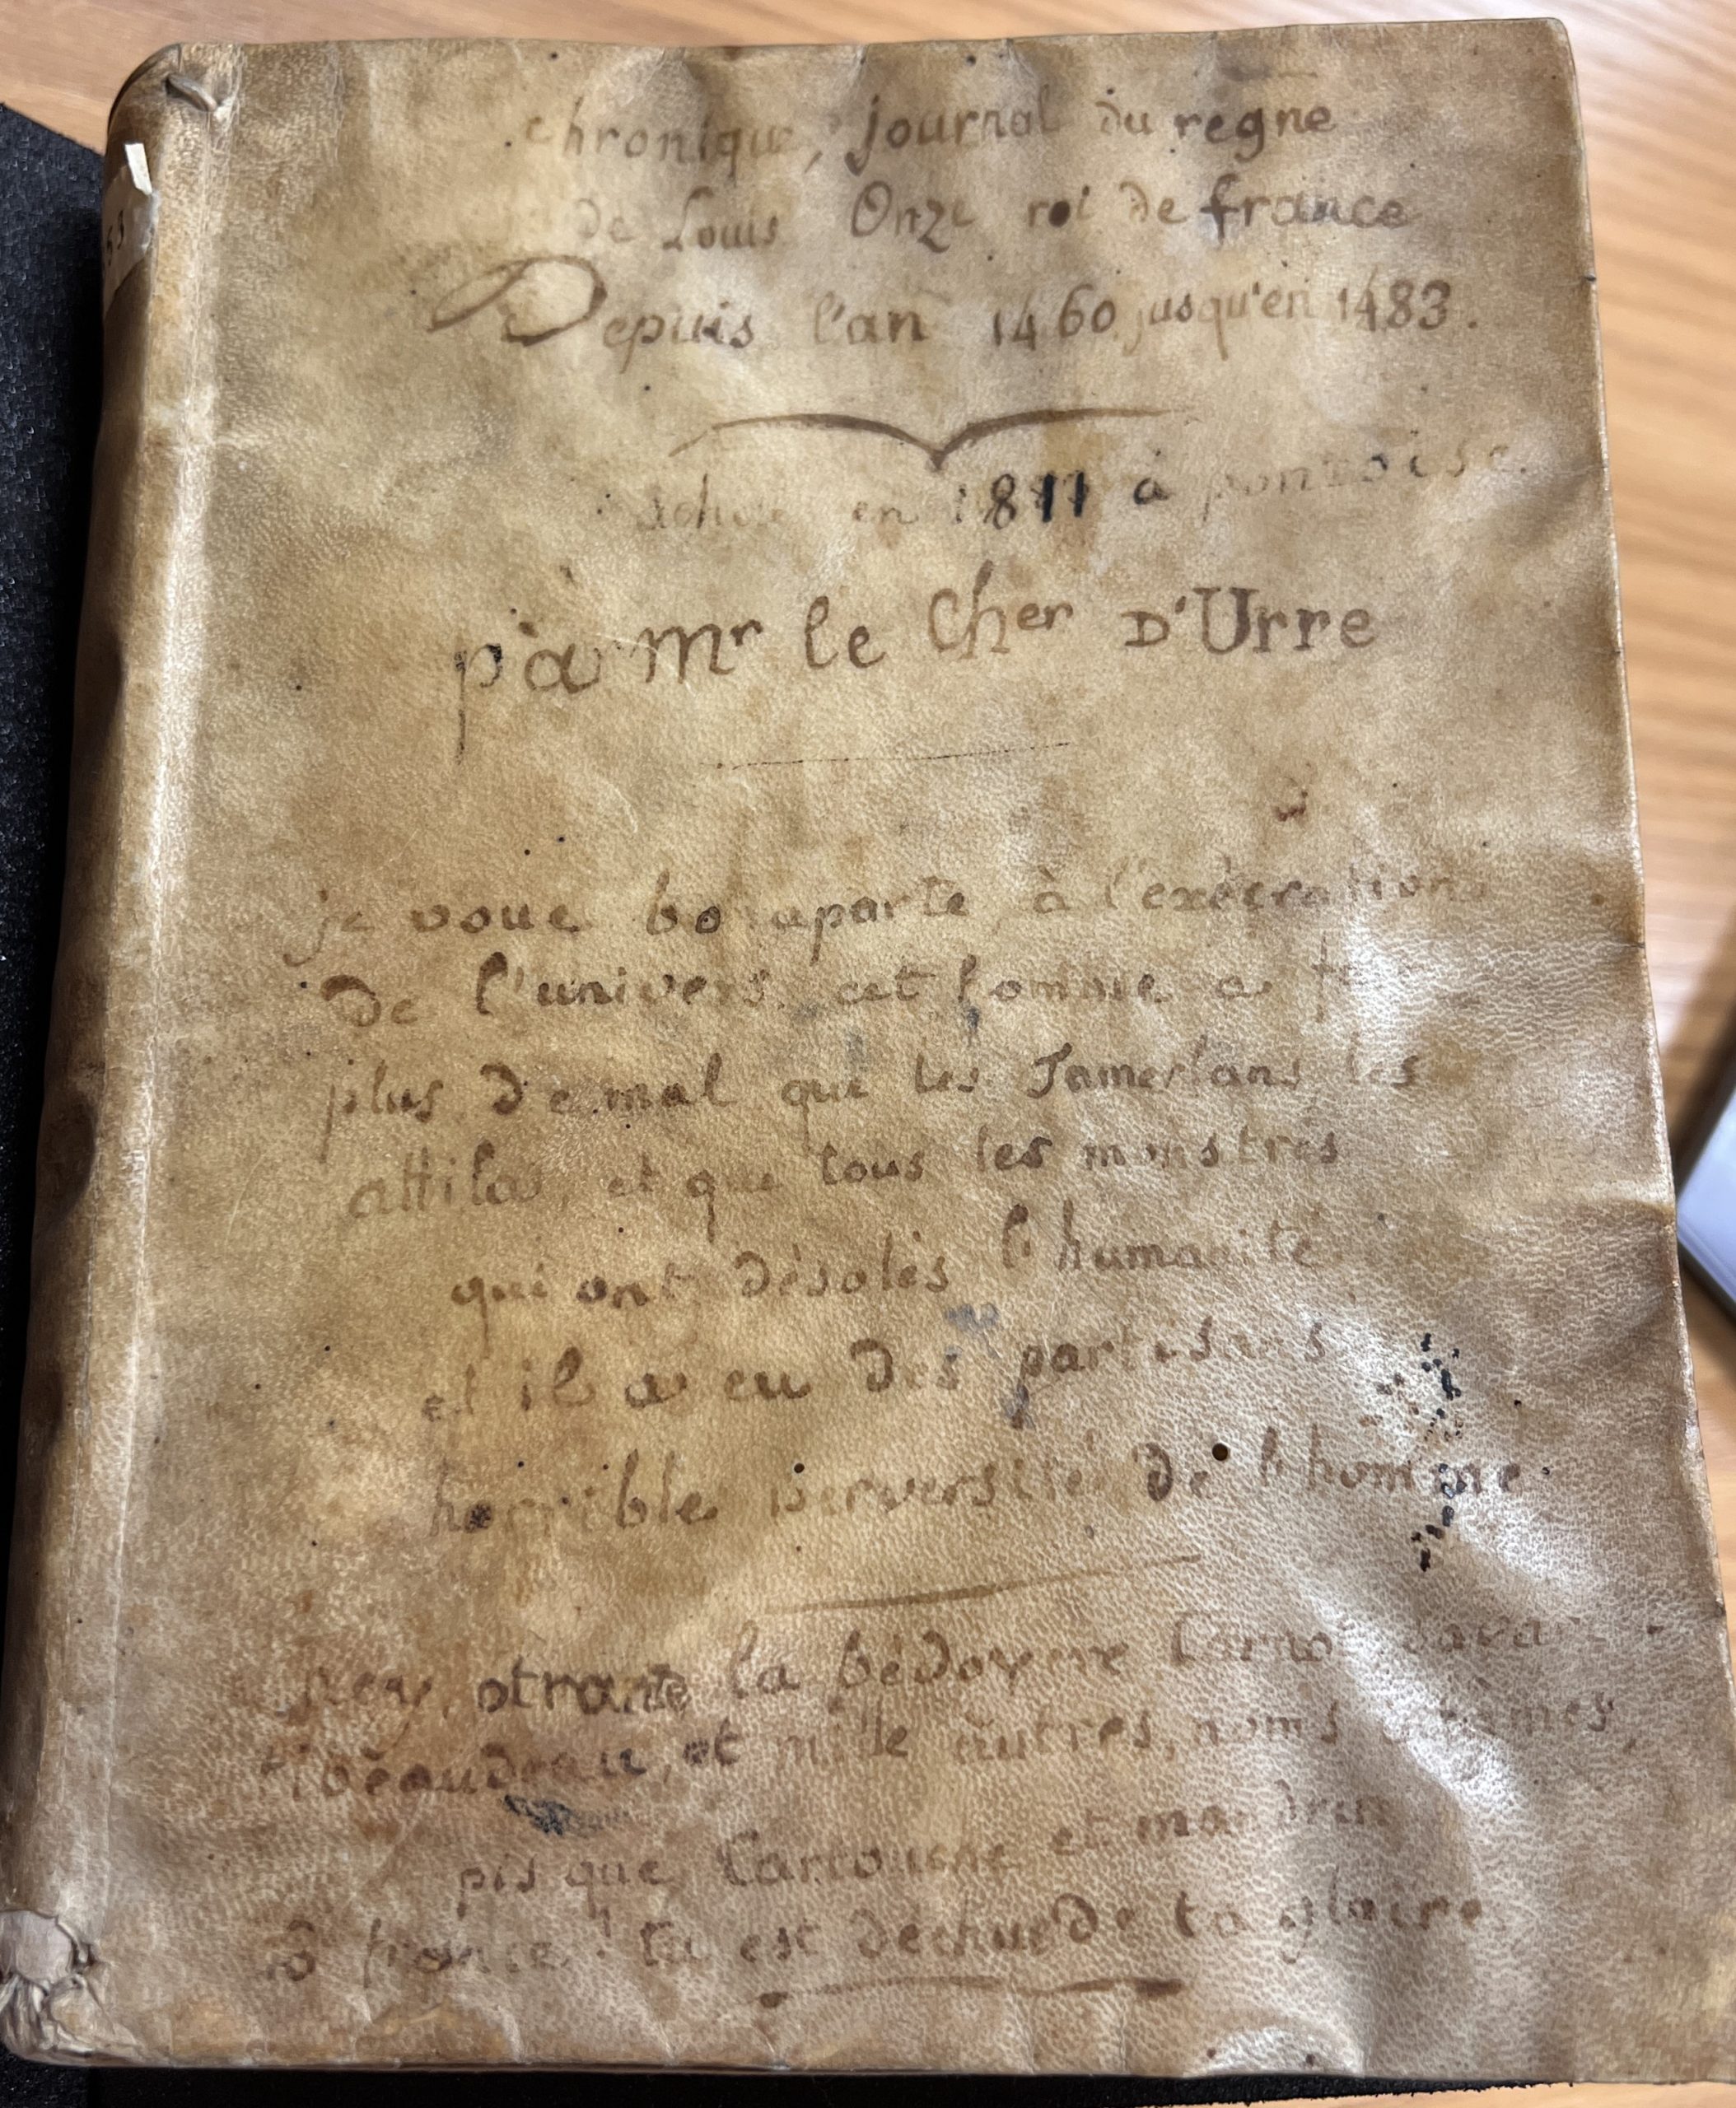 chronique, journal du regne
de Louis Onze roi de france
Depuis l'an 1460 jusqu'en 1483.
en 1811 à pontoise.
par mr le Cher D'Urre
je voue bonaparte à l'exécration
de l'univers. cet homme a
plus de mal que les Tamerlans les
attila, et que tous les monstres
qui ont désolés l'humanité
et il a eu des partisans
horrible perversité de l'homme
ney, otrante la bédoyere Carnot
tibeaudeau, et mille autres, noms
pis que Cartouche et mandrin
ô france! tu est dechue de ta gloire
53